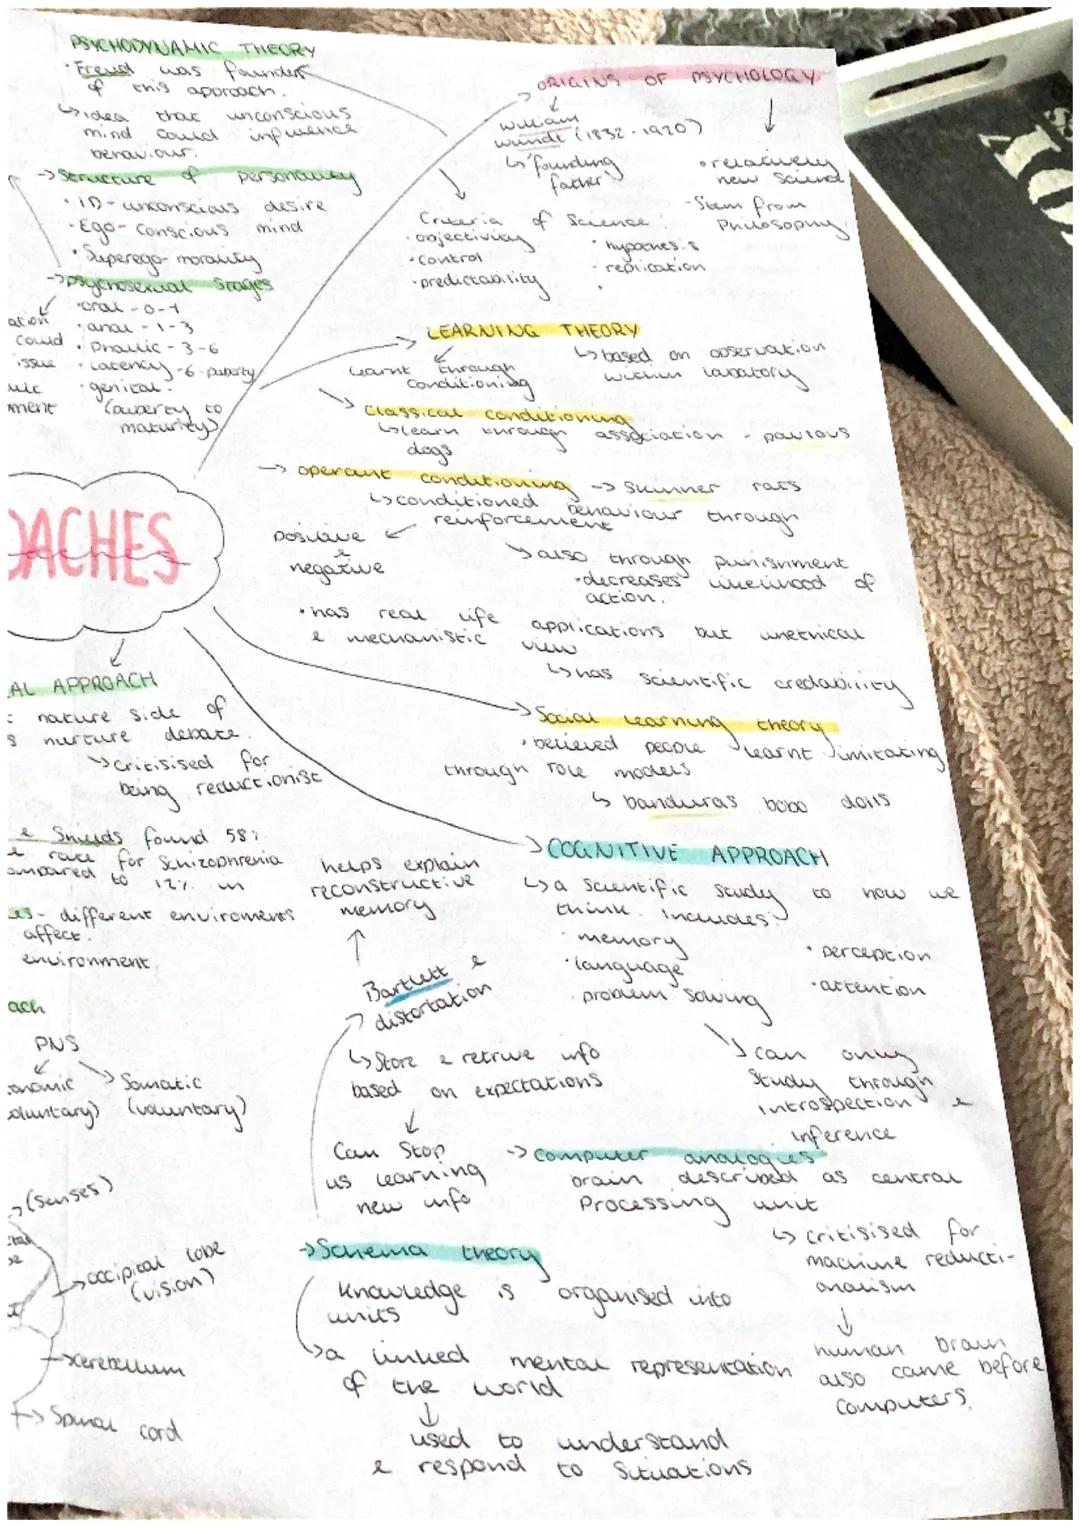 PSYCHODYNAMIC THEORY
• Freud was founder
of this approach.
↳ idea that unconscious
mind could influence
behaviour.
→ Structure of personality
• ID - unconscious desire
• Ego - conscious mind
• Superego - morality
→ psychosexual stages
• oral - 0-1
• anal - 1-3
• Phallic - 3-6
• Latency - 6-puberty
• genital -
(puberty to
maturity)
ation
could
issue
ment
ORIGINS OF PSYCHOLOGY
William
Wundt (1832-1920)
↳ 'founding
father'
• relatively
new science
- Stem from
Philosophy.
Criteria of Science:
• objectivity
• control
• predictability
• hypothesis
• replication
LEARNING THEORY
learnt through
conditioning
↳ based on observation
within labatory
classical conditioning
↳ learn through association - pavlovs
dogs
→ operant conditioning → Skinner rats
↳ conditioned behaviour through
reinforcement
positive
&
negative
↘ also through punishment
• decreases likelihood of
action.
• has real life applications but unethical
& mechanistic view
↳ has scientific credability
→ Social learning theory
• believed people learnt imitating
through role models
↳ banduras bobo dolls
OACHES
AL APPROACH
nature side of
nurture debate.
↘ critisised for
being reductionist
& Shields found 58%
rate for Schizophrenia
ompared to 12% in
es - different enviroments
affect.
environment
ach
PNS
onomic
oluntary)
Somatic
(voluntary)
→ (senses)
→ occipital lobe
(vision)
→ cerebellum
→ Spinal cord
→ COGNITIVE APPROACH
↳ a scientific study to how we
think. Includes:
• memory
• language
• problem solving
• perception
• attention
↘ can only
study through
introspection &
inference
helps explain
reconstructive
memory
Bartlett &
distortation
↳ Store & retrive info
based on expectations
Can Stop
us learning
new info
→ Computer analogies
brain described as central
Processing unit
↳ critisised for
machine reducti-
onalism
human brain
also came before
computers.
→ Schema theory
Knowledge is organised into
units
↳ a linked mental representation
of the world
used to understand
& respond to situations